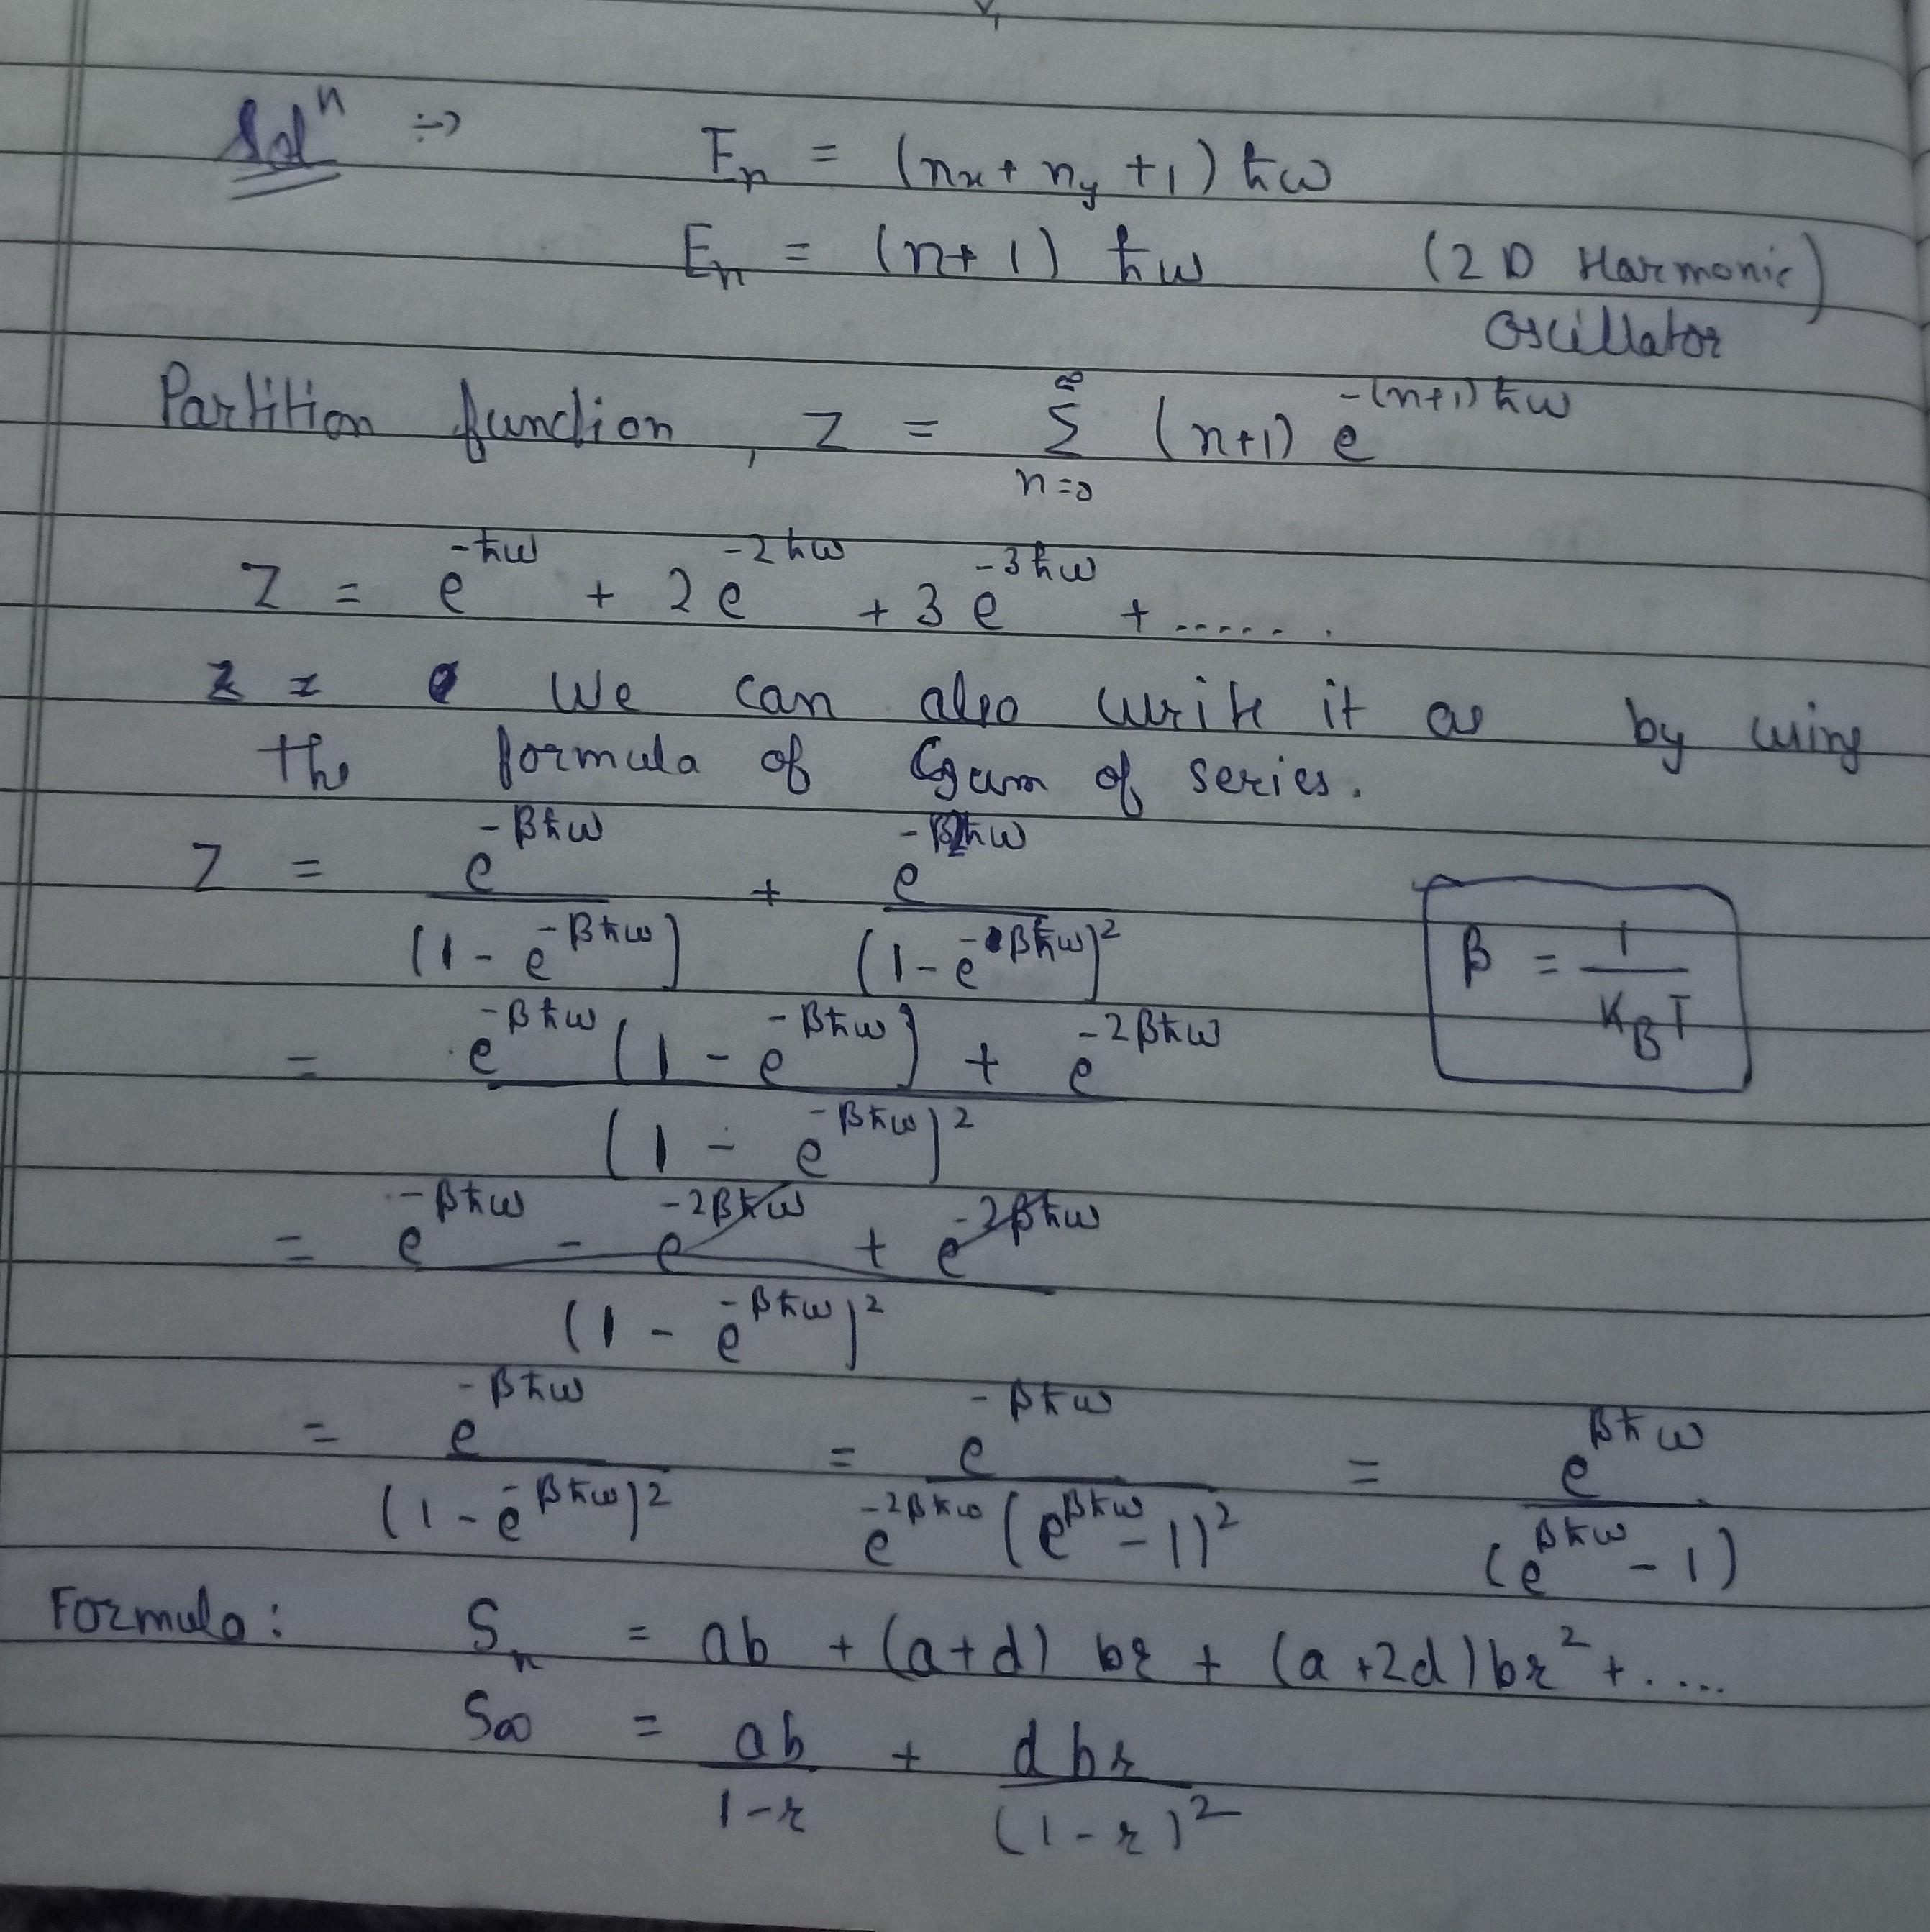 Solⁿ ÷→ Eₙ = (nₓ + n_y + 1) ħω
Eₙ = (n + 1) ħω (2 D Harmonic)
Oscillator
Partition function, Z = Σ_{n=0}^{∞} (n+1) e^{-(n+1) ħω}
Z = e^{-ħω} + 2 e^{-2ħω} + 3 e^{-3ħω} + ......
We can also write it as by using
the formula of sum of series.
Z = e^{-βħω} / (1 - e^{-βħω}) + e^{-β2ħω} / (1 - e^{-βħω})²
β = 1 / K_B T
= e^{-βħω} (1 - e^{-βħω}) + e^{-2βħω} / (1 - e^{-βħω})²
= e^{-βħω} - e^{-2βħω} + e^{-2βħω} / (1 - e^{-βħω})²
= e^{-βħω} / (1 - e^{-βħω})² = e^{-βħω} / e^{-2βħω} (e^{βħω} - 1)² = e^{βħω} / (e^{βħω} - 1)
Formula: Sₙ = ab + (a+d) br + (a+2d) br² + .....
S∞ = ab / 1-r + dbr / (1-r)²